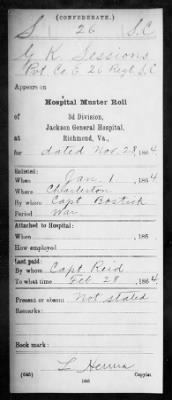 (CONFEDERATE.)
S 26 S.C
G K Sessions
Pvt. Co E 26 Regt S.C
Appears on
Hospital Muster Roll
of 3d Division,
Jackson General Hospital,
at Richmond, Va.,
for dated Nov 28, 1864
Enlisted:
When Jan 1, 1864
Where Charleston
By whom Capt Bostick
Period War
Attached to Hospital:
When , 186
How employed
Last paid:
By whom Capt Reid
To what time Feb 28, 1864.
Present or absent Not stated
Remarks:
Book mark:
(635)
Copyist.